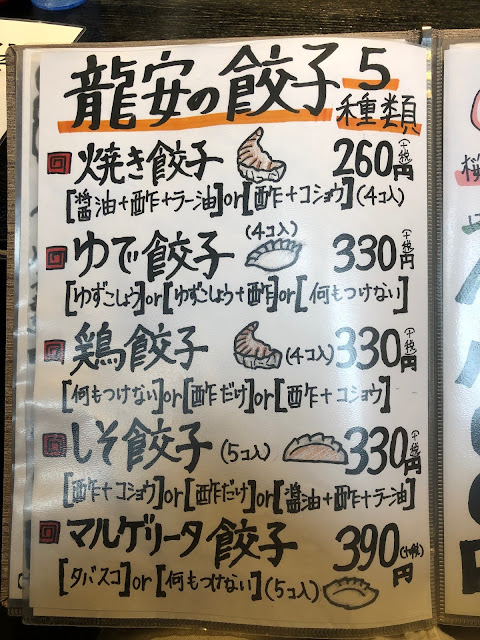 龍安の餃子5種類
焼き餃子 260円(+税)
[醤油+酢+ラー油]or[酢+コショウ](4コ入)
ゆで餃子 (4コ入) 330円(+税)
[ゆずこしょう]or[ゆずこしょう+酢]or[何もつけない]
鶏餃子 (4コ入) 330円(+税)
[何もつけない]or[酢だけ]or[酢+コショウ]
しそ餃子 (5コ入) 330円(+税)
[酢+コショウ]or[酢だけ]or[醤油+酢+ラー油]
マルゲリータ餃子 390円(+税)
[タバスコ]or[何もつけない](5コ入)
桜